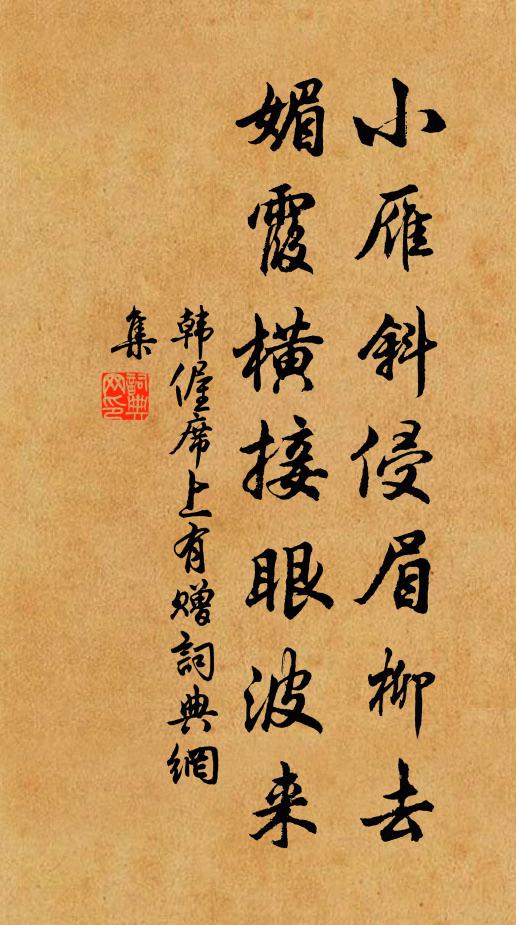 小雁斜侵眉柳去
媚霞横接眼波来
韩偓席上有赠詞典網
集
詞典
网印